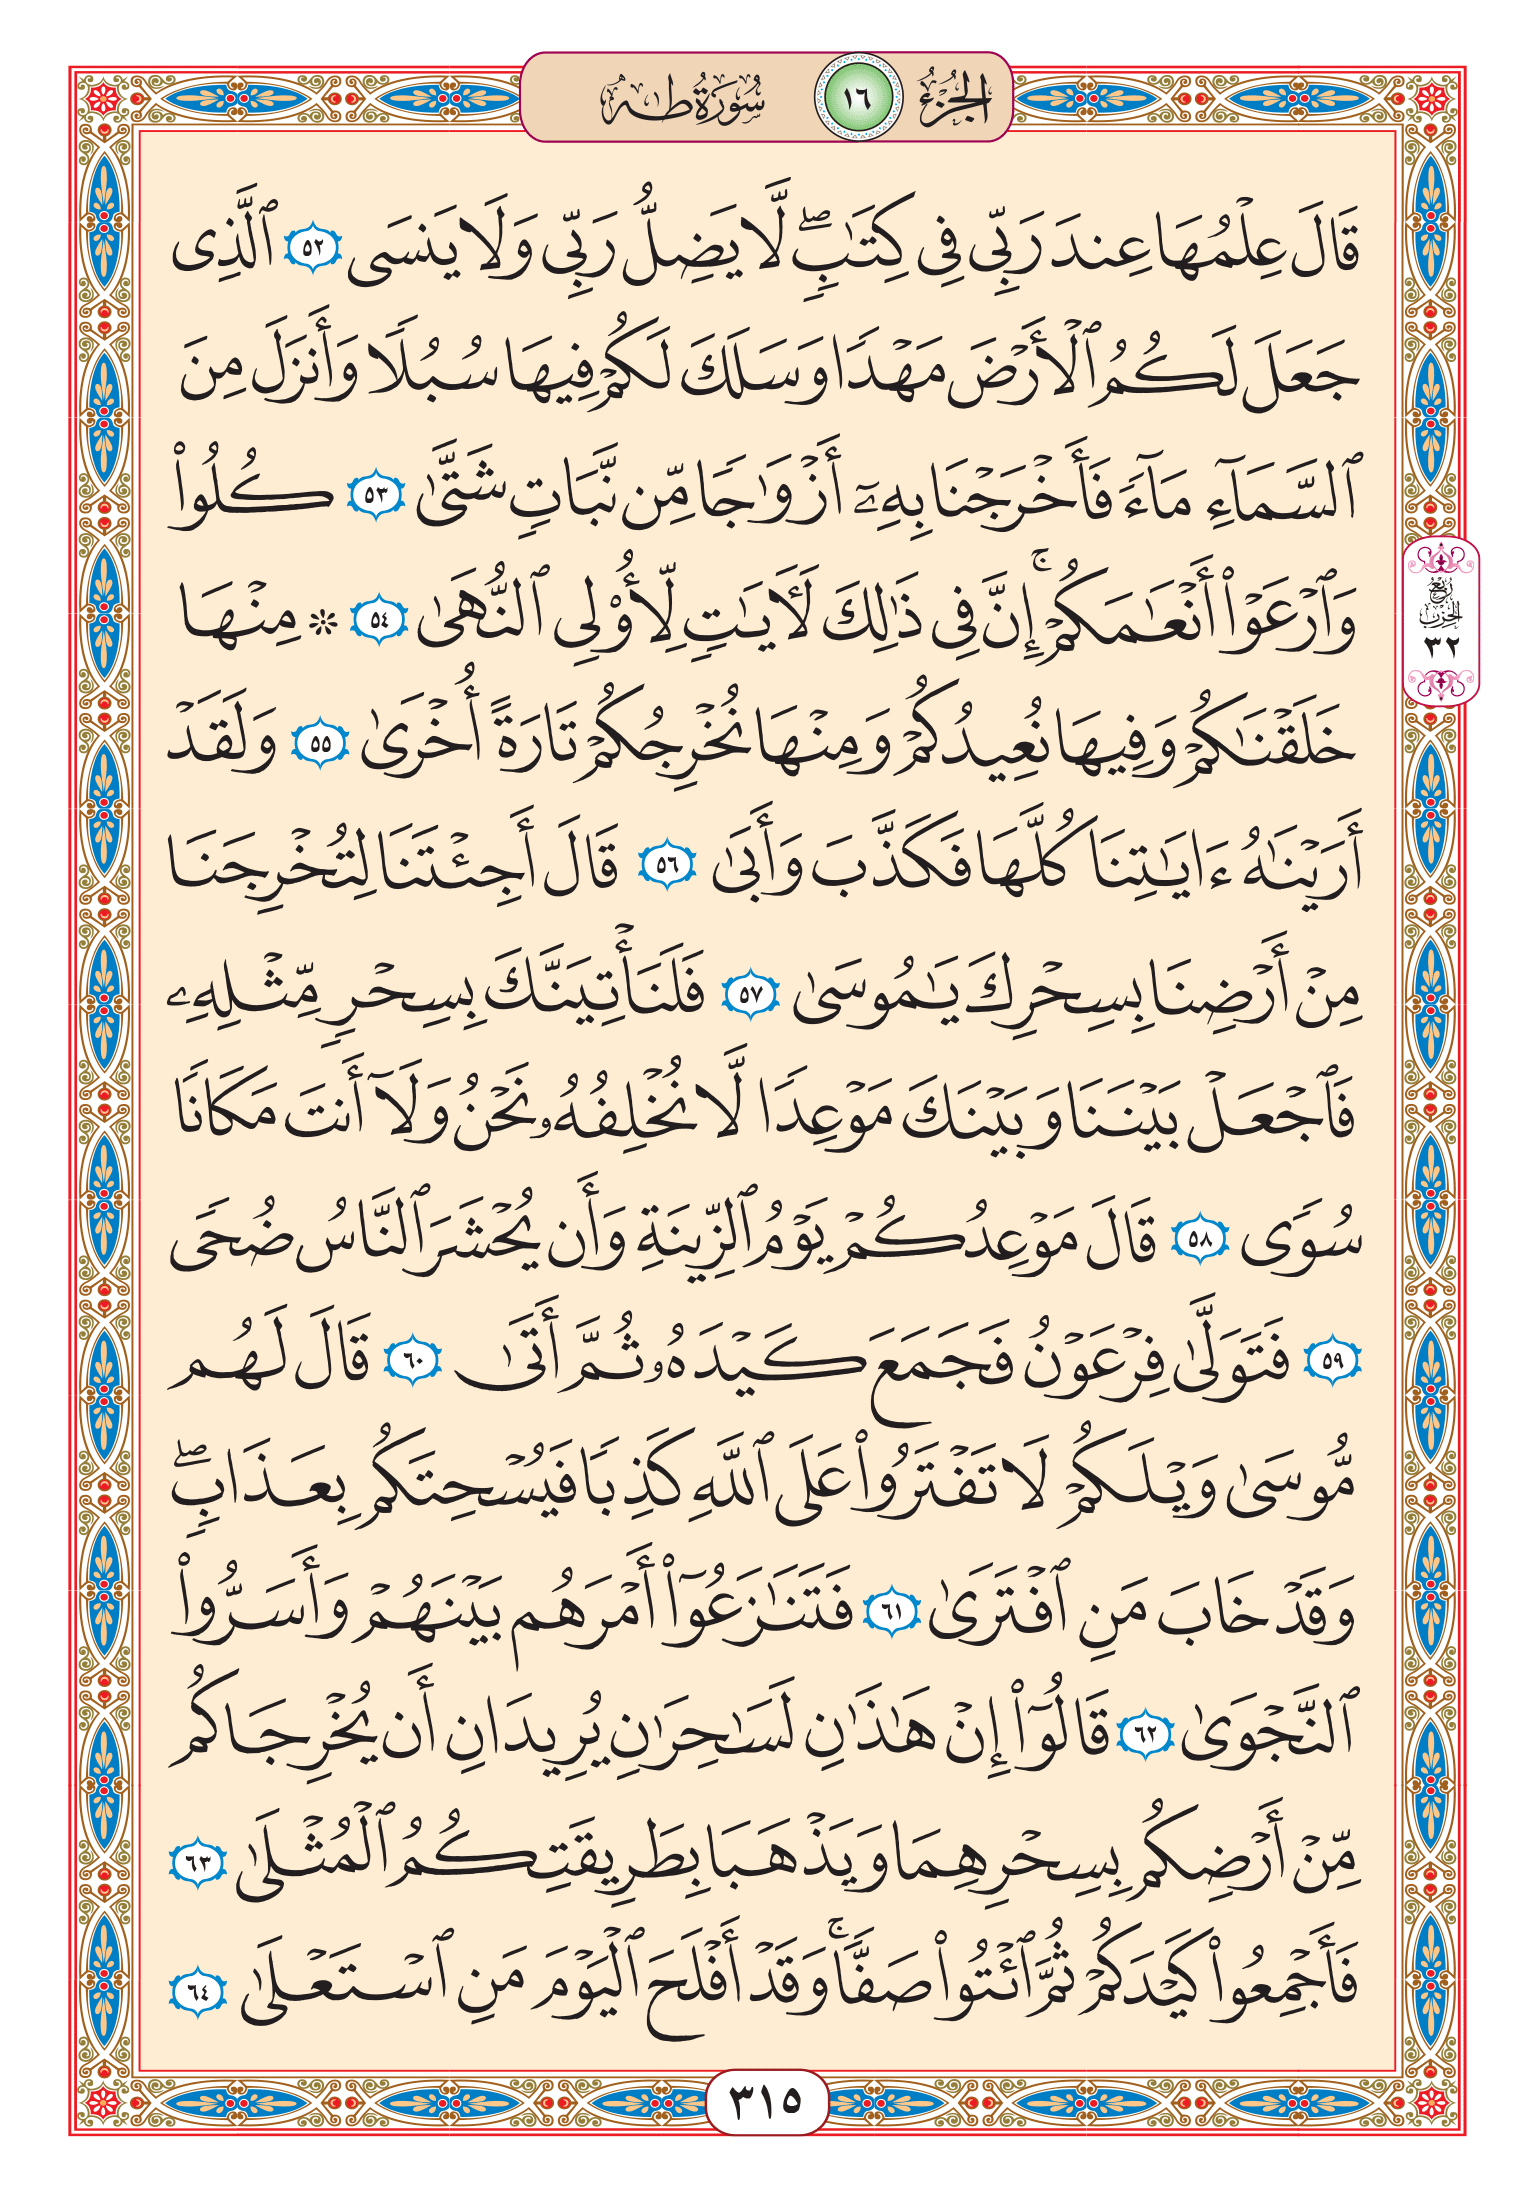 الجُزْءُ ١٦ سُورَةُ طه
قَالَ عِلْمُهَا عِندَ رَبِّي فِي كِتَٰبٖۖ لَّا يَضِلُّ رَبِّي وَلَا يَنسَى ٥٢ ٱلَّذِي
جَعَلَ لَكُمُ ٱلْأَرْضَ مَهْدٗا وَسَلَكَ لَكُمْ فِيهَا سُبُلٗا وَأَنزَلَ مِنَ
ٱلسَّمَآءِ مَآءٗ فَأَخْرَجْنَا بِهِۦٓ أَزْوَٰجٗا مِّن نَّبَاتٖ شَتَّىٰ ٥٣ كُلُواْ
وَٱرْعَوْاْ أَنْعَٰمَكُمْۚ إِنَّ فِي ذَٰلِكَ لَأٓيَٰتٖ لِّأُوْلِي ٱلنُّهَىٰ ٥٤ ۞ مِنْهَا
خَلَقْنَٰكُمْ وَفِيهَا نُعِيدُكُمْ وَمِنْهَا نُخْرِجُكُمْ تَارَةً أُخْرَىٰ ٥٥ وَلَقَدْ
أَرَيْنَٰهُ ءَايَٰتِنَا كُلَّهَا فَكَذَّبَ وَأَبَىٰ ٥٦ قَالَ أَجِئْتَنَا لِتُخْرِجَنَا
مِنْ أَرْضِنَا بِسِحْرِكَ يَٰمُوسَىٰ ٥٧ فَلَنَأْتِيَنَّكَ بِسِحْرٖ مِّثْلِهِۦ
فَٱجْعَلْ بَيْنَنَا وَبَيْنَكَ مَوْعِدٗا لَّا نُخْلِفُهُۥ نَحْنُ وَلَآ أَنتَ مَكَانٗا
سُوٗى ٥٨ قَالَ مَوْعِدُكُمْ يَوْمُ ٱلزِّينَةِ وَأَن يُحْشَرَ ٱلنَّاسُ ضُحٗى
٥٩ فَتَوَلَّىٰ فِرْعَوْنُ فَجَمَعَ كَيْدَهُۥ ثُمَّ أَتَىٰ ٦٠ قَالَ لَهُم
مُّوسَىٰ وَيْلَكُمْ لَا تَفْتَرُواْ عَلَى ٱللَّهِ كَذِبٗا فَيُسْحِتَكُم بِعَذَابٖۖ
وَقَدْ خَابَ مَنِ ٱفْتَرَىٰ ٦١ فَتَنَٰزَعُوٓاْ أَمْرَهُم بَيْنَهُمْ وَأَسَرُّواْ
ٱلنَّجْوَىٰ ٦٢ قَالُوٓاْ إِنْ هَٰذَٰنِ لَسَٰحِرَٰنِ يُرِيدَانِ أَن يُخْرِجَاكُم
مِّنْ أَرْضِكُم بِسِحْرِهِمَا وَيَذْهَبَا بِطَرِيقَتِكُمُ ٱلْمُثْلَىٰ ٦٣
فَأَجْمِعُواْ كَيْدَكُمْ ثُمَّ ٱئْتُواْ صَفّٗاۚ وَقَدْ أَفْلَحَ ٱلْيَوْمَ مَنِ ٱسْتَعْلَىٰ ٦٤
رُبْعُ
الحِزْبِ
٣٢
٣١٥